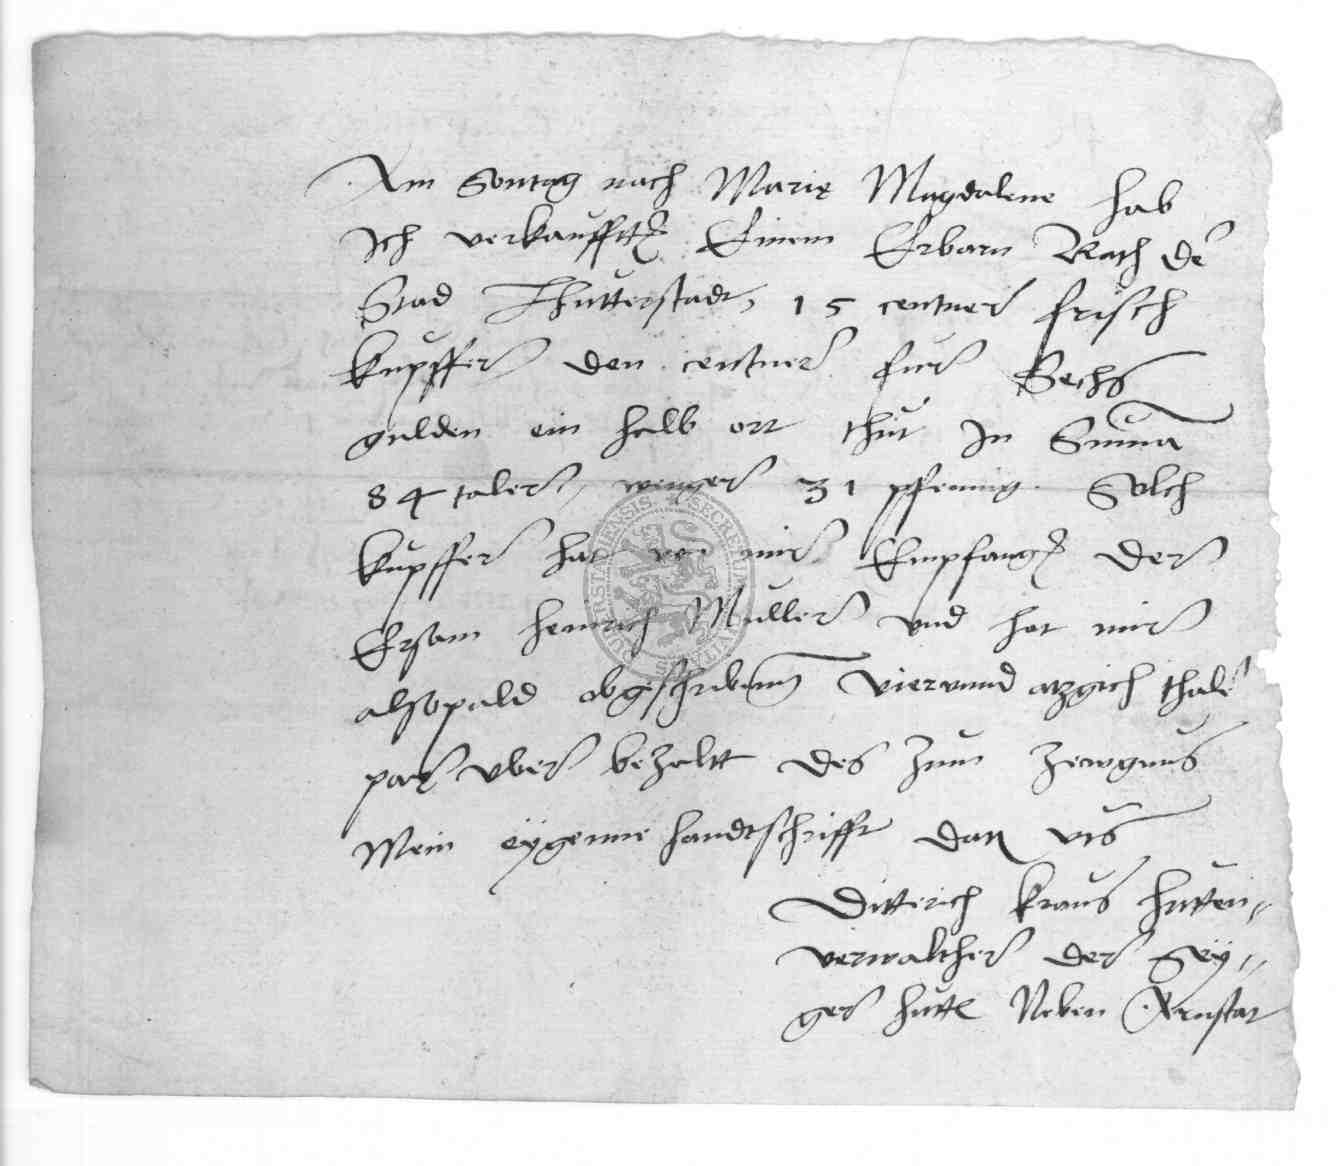 Am Sontag nach Marie Magdalene hab
Ich verkaufftt Einem Erbarn Rath der
Stad Thutterstadt, 15 centner frisch
kupffer den centner fur Sechs
gulden ein halb ort thut In Suma
84 taler weniger 31 pfennig. Solch
kupffer hat von mir Empfangen der
Ersam heinrich Muller vnd hat mir
alsopald obgeschribenn vierunnd atzgich thaler
par vber bezaltt des zum Zewgnus
Mein eygenne handtschrifft datum vts
Ditterich kraus hutten=
verwalther der Sey=
ger hutte Neben Arnstat